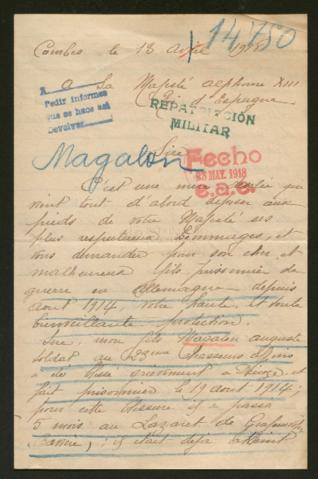 14,750
Combes le 13 Avril 1918
A Sa Majesté Alphonse XIII
Roi d'Espagne
A
Pedir informes
que se hace así
Devolver
REPATRIACIÓN
MILITAR
Sire
Magalon
Fecho
MAY. 1918
C'est une mère qui
vient tout d'abord déposer aux
pieds de votre Majesté ses
plus respectueux hommages, et
vous demander pour son cher et
malheureux fils prisonnier de
guerre en Allemagne depuis
août 1914, votre haute et toute
bienveillante protection.
Sire, mon fils Magalon auguste
soldat au Chasseurs Alpins
a été blessé grièvement à
fait prisonnier le 19 août 1914;
pour cette blessure il a passé
5 mois au Lazaret de
il était déjà atteint